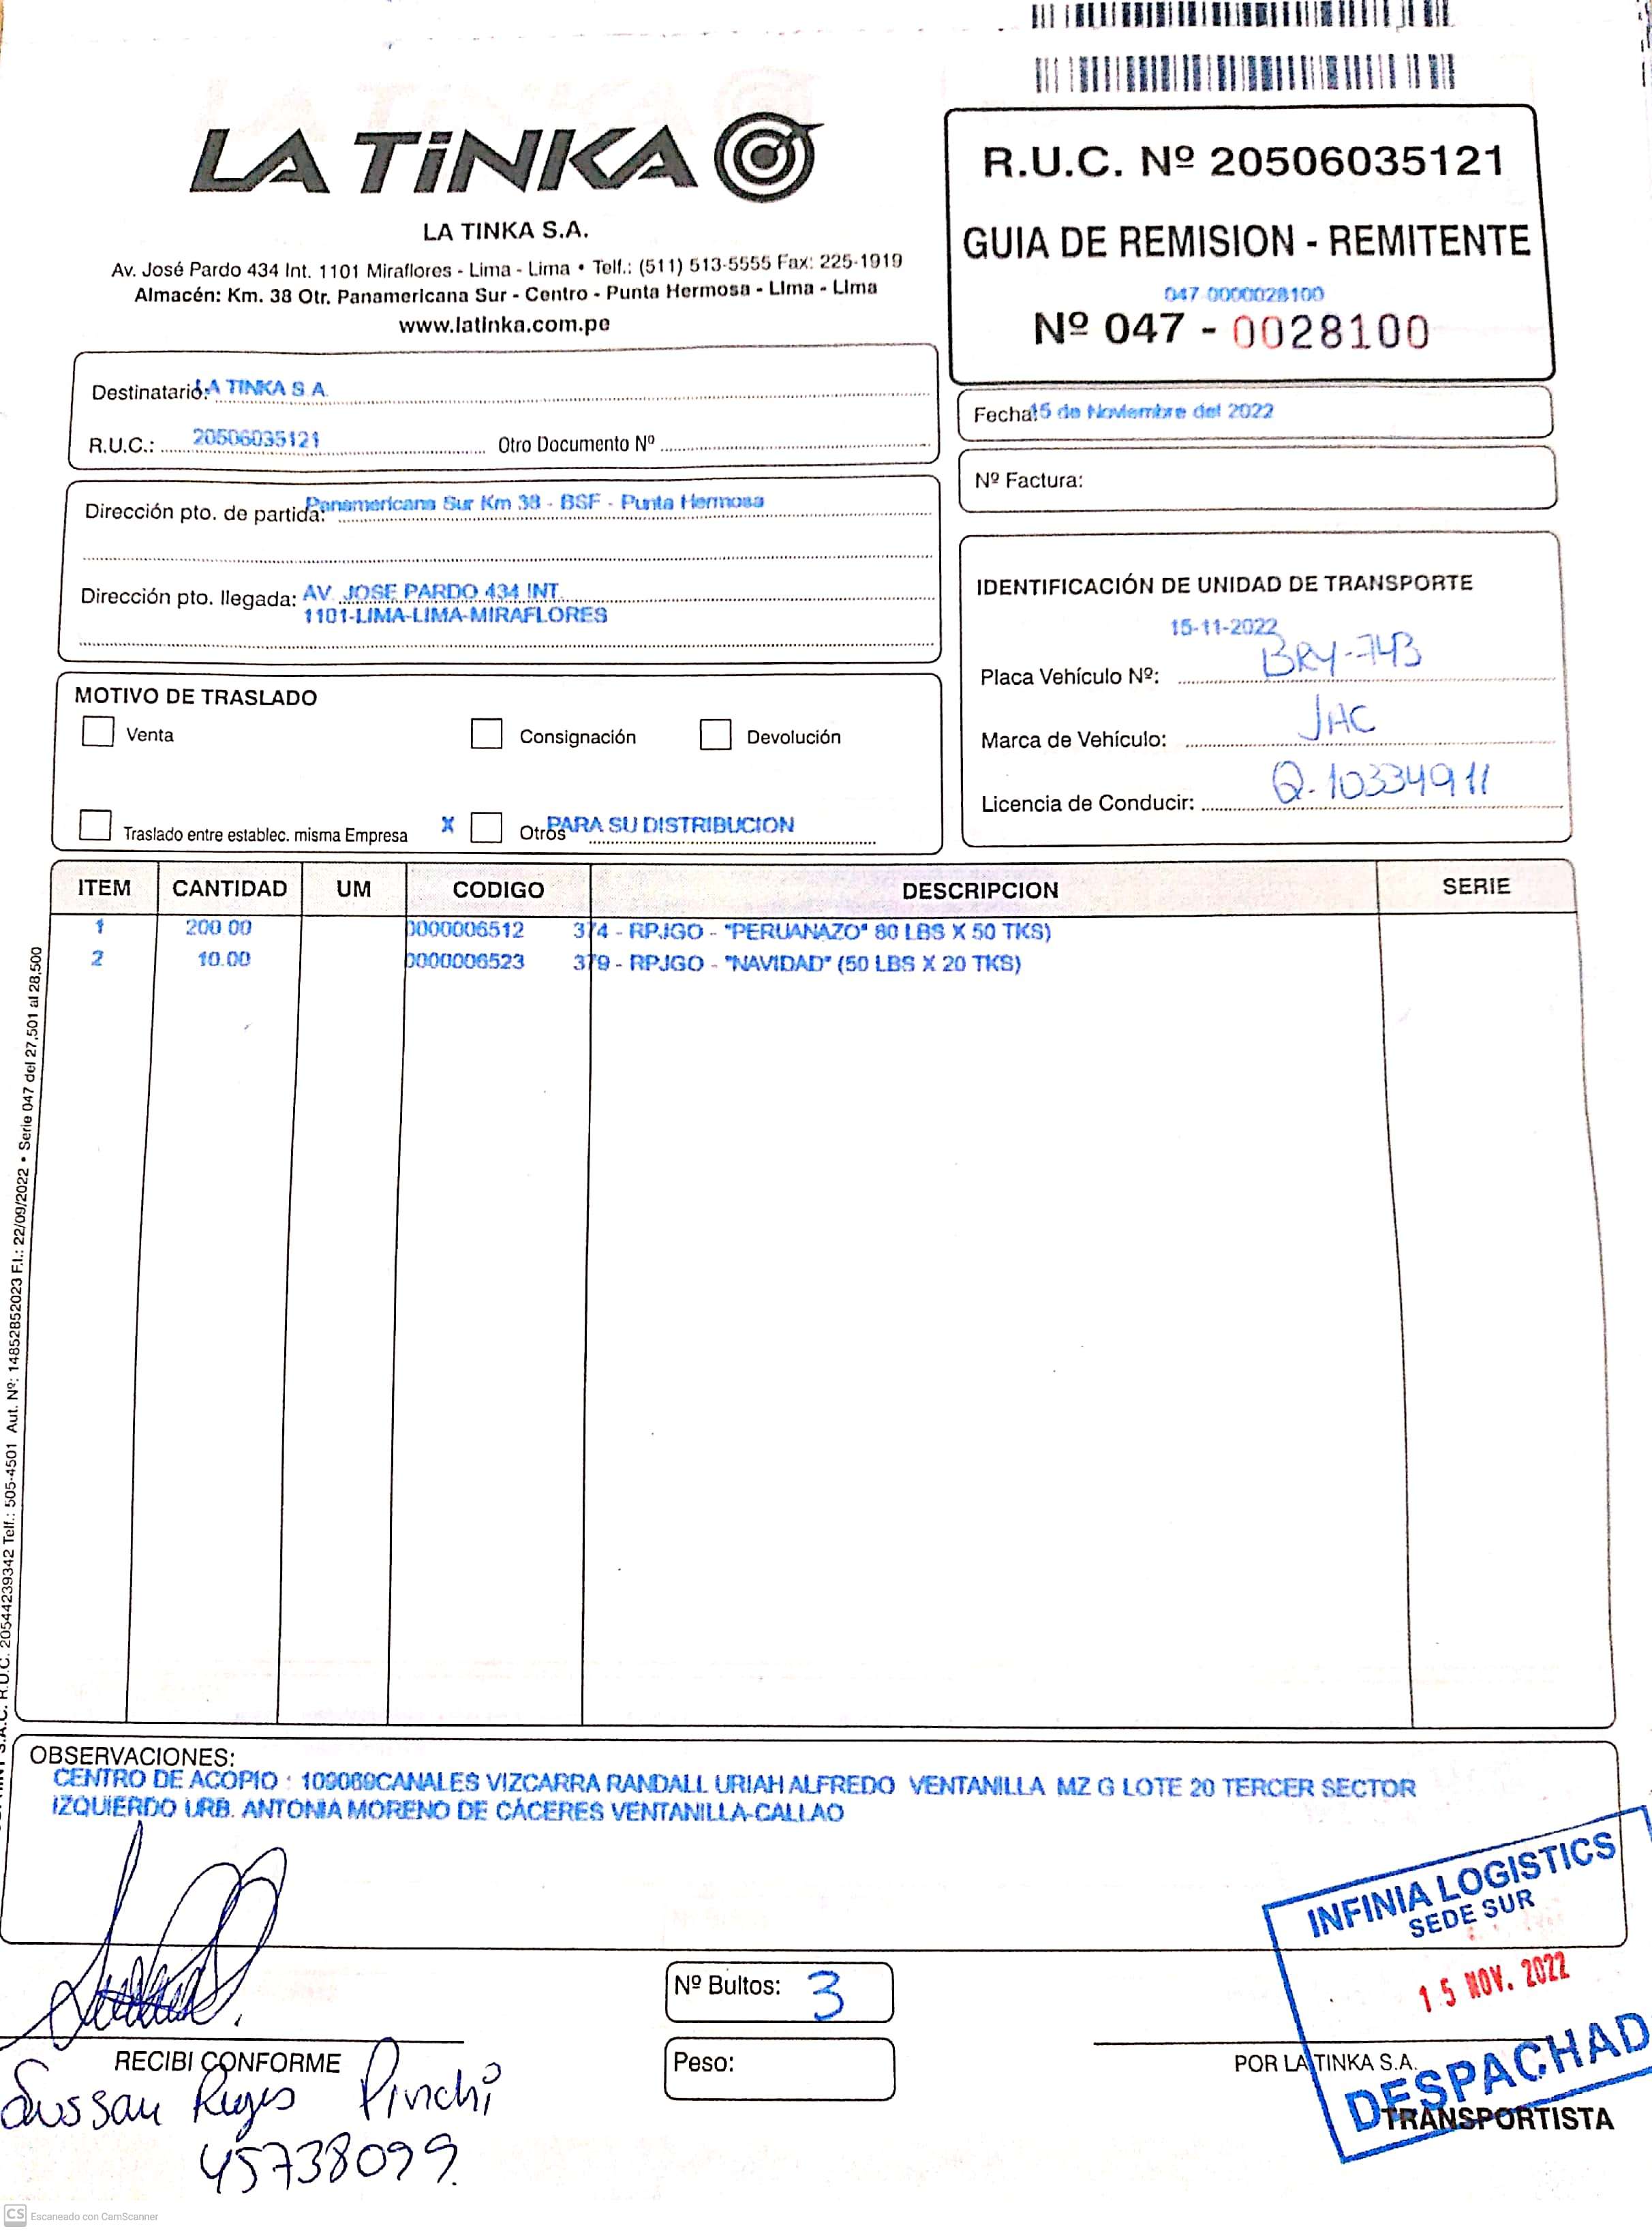 LA TiNKA
LA TINKA S.A.
Av. José Pardo 434 Int. 1101 Miraflores - Lima - Lima • Telf.: (511) 513-5555 Fax: 225-1919
Almacén: Km. 38 Otr. Panamericana Sur - Centro - Punta Hermosa - Lima - Lima
www.latinka.com.pe
R.U.C. Nº 20506035121
GUIA DE REMISION - REMITENTE
047 0000028100
Nº 047 - 0028100
Destinatario: LA TINKA S A.
R.U.C.: 20506035121 Otro Documento Nº
Fecha: 15 de Noviembre del 2022
Nº Factura:
Dirección pto. de partida: Panamericana Sur Km 38 - BSF - Punta Hermosa
Dirección pto. llegada: AV. JOSE PARDO 434 INT.
1101-LIMA-LIMA-MIRAFLORES
IDENTIFICACIÓN DE UNIDAD DE TRANSPORTE
15-11-2022
Placa Vehículo Nº: BRY-743
Marca de Vehículo: JAC
Licencia de Conducir: Q-10334911
MOTIVO DE TRASLADO
Venta Consignación Devolución
Traslado entre establec. misma Empresa X Otros PARA SU DISTRIBUCION
ITEM CANTIDAD UM CODIGO DESCRIPCION SERIE
1 200 00 0000006512 374 - RPJGO - "PERUANAZO" 80 LBS X 50 TKS)
2 10.00 0000006523 379 - RPJGO - "NAVIDAD" (50 LBS X 20 TKS)
S.A.C. R.U.C. 20544239342 Telf.: 505-4501 Aut. Nº: 14852852023 F.I.: 22/09/2022 • Serie 047 del 27,501 al 28,500
OBSERVACIONES:
CENTRO DE ACOPIO : 109069CANALES VIZCARRA RANDALL URIAH ALFREDO VENTANILLA MZ G LOTE 20 TERCER SECTOR
IZQUIERDO URB. ANTONIA MORENO DE CÁCERES VENTANILLA-CALLAO
INFINIA LOGISTICS
SEDE SUR
15 NOV. 2022
DESPACHAD
Nº Bultos: 3
Peso:
RECIBI CONFORME
Sussan Reyes Pinchi
45738099
POR LA TINKA S.A.
TRANSPORTISTA
CS Escaneado con CamScanner